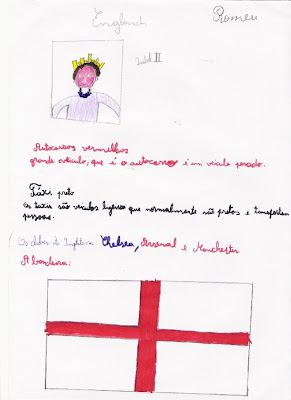 England
Romeu
II
Autocarros vermelhos
grande veículo, que é o autocarro é um veículo pesado.
Táxi preto
Os taxis são veículos ingleses que normalmente são pretos e transportam
pessoas.
Os clubes de Inglaterra: Chelsea, Arsenal e Manchester
A bandeira: